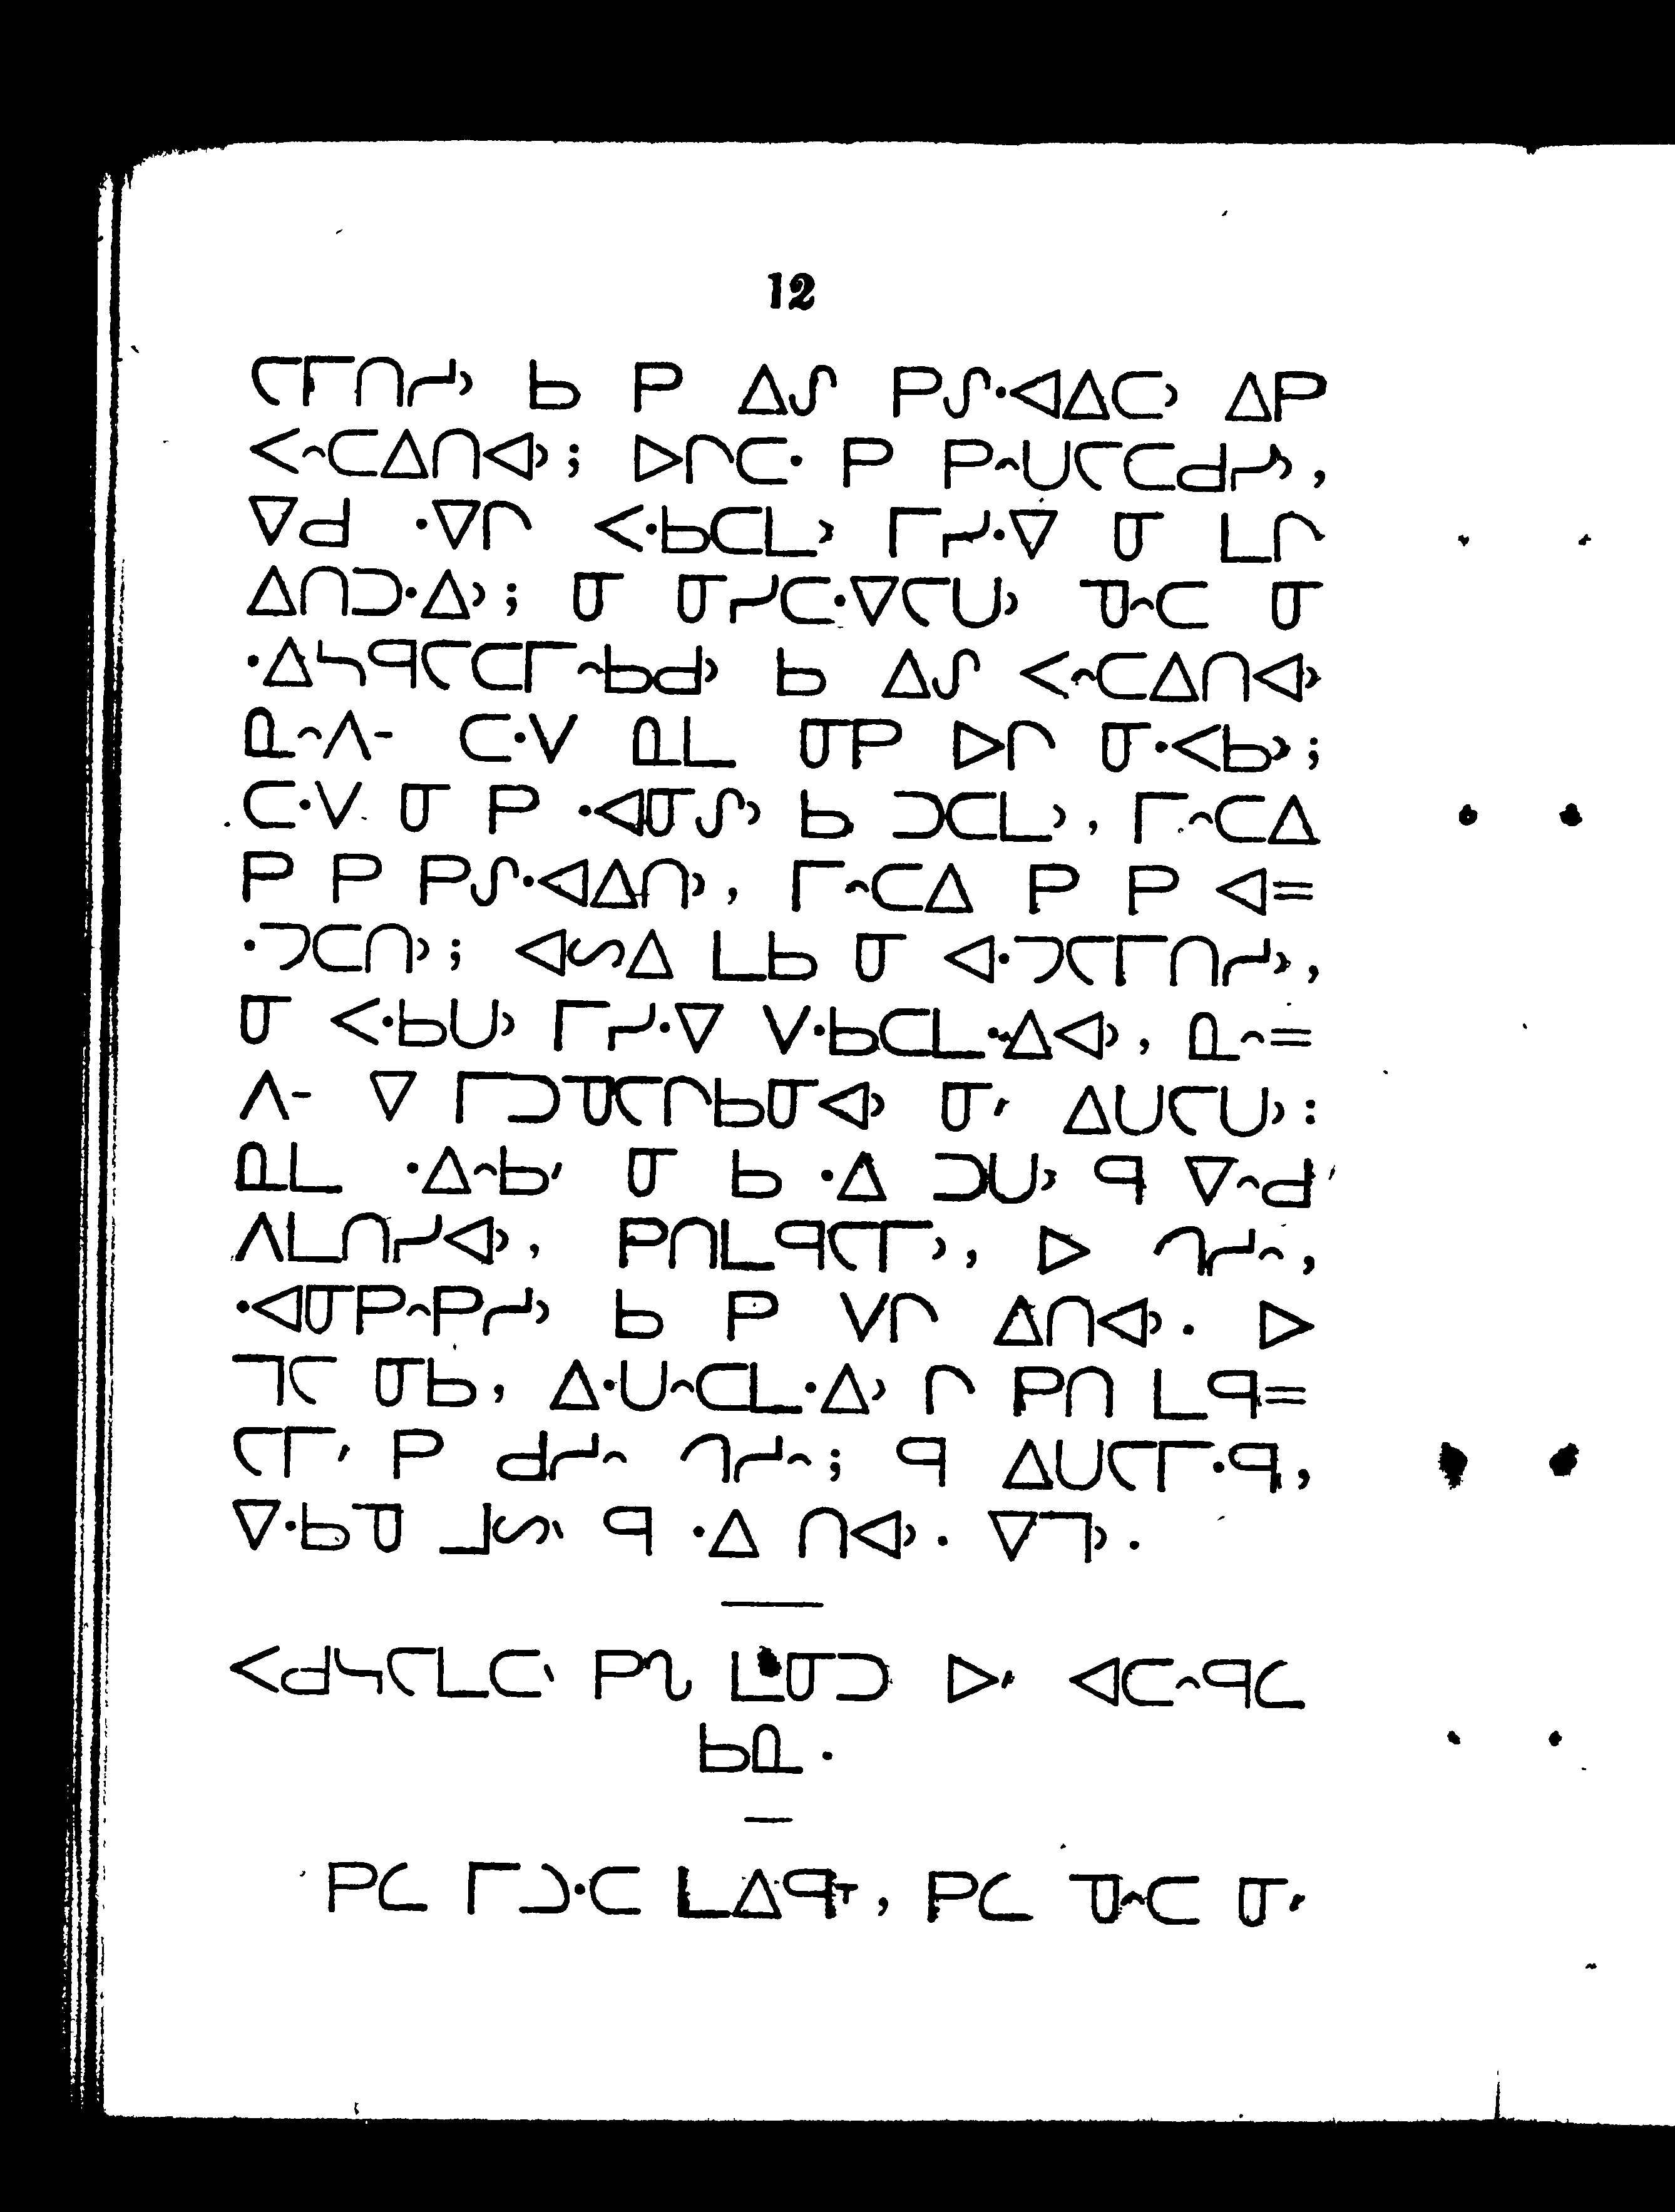 12
ᓕᒥᑎᓯᐣ ᑲ ᑭ ᐃᔑ ᑭᔑᐧᐊᐃᑕᐣ ᐃᑭ
ᐸᐢᑕᐃᑎᐊᐣ; ᐅᒋᑕᐧ ᑭ ᑭᐢᑌᓕᑕᑯᓯᐣ,
ᐁᑯ ᐧᐁᒋ ᐸᐧᑲᑕᒪᐣ ᒥᓯᐧᐁ ᓂ ᒪᒋ
ᐃᑎᑐᐧᐃᐣ; ᓂ ᓂᓯᑕᐧᐁᓕᑌᐣ ᓀᐢᑕ ᓂ
ᐧᐃᓴᑫᓕᑕᒥᐢᑲᑯᐣ ᑲ ᐃᔑ ᐸᐢᑕᐃᑎᐊᐣ
ᓇᐢᐱ- ᑕᐧᐯ ᓇᒪ ᓂᑭ ᐅᒋ ᓂᐧᐸᑲᐣ;
ᑕᐧᐯ ᓂ ᑭ ᐧᐊᓂᔑᐣ ᑲ ᑐᑕᒪᐣ, ᒥᐢᑕᐃ
ᑭ ᑭ ᑭᔑᐧᐊᐃᑎᐣ, ᒥᐢᑕᐃ ᑭ ᑭ ᐊ=
ᐧᑐᑕᑎᐣ; ᐊᔕᐃ ᒪᑲ ᓂ ᐊᐧᑐᓕᒥᑎᓯᐣ,
ᓂ ᐸᐧᑲᑌᐣ ᒥᓯᐧᐁ ᐯᐧᑲᑕᒪᐧᐃᐊᐣ, ᓇᐢ=
ᐱ- ᐁ ᒥᑐᓀᓕᒋᑲᓂᐊᐣ ᓂᐟ ᐃᑌᓕᑌᐣ:
ᓇᒪ ᐧᐃᐢᑲᐟ ᓂ ᑲ ᐧᐃ ᑐᑌᐣ ᑫ ᐁᐢᑯ
ᐱᒪᑎᓯᐊᐣ, ᑭᑎᒪᑫᓕᒥᐣ, ᐅ ᒉᓯᐢ,
ᐧᐊᓂᑭᐢᑭᓯᐣ ᑲ ᑭ ᐯᒋ ᐃᑎᐊᐣ. ᐅ
ᒣᓕ ᓂᑲ, ᐃᐧᑌᐢᑕᒪᐧᐃᐣ ᒋ ᑭᑎ ᒪᑫ=
ᓕᒥᐟ ᑭ ᑯᓯᐢ ᒉᓯᐢ; ᑫ ᐃᑌᓕᒥᐧᑫ,
ᐁᐧᑲᓀ ᒧᔕᐠ ᑫ ᐧᐃ ᑎᐊᐣ. ᐁᒣᐣ.
ᐸᑯᓴᓕᒪᑕᐠ ᑭᔐ ᒪᓂᑐ ᐅᐟ ᐊᑕᐢᑫᓚ
ᑲᓇ.
ᑭᓚ ᒥᑐᐧᑕ ᒪᐃᑫᐩ, ᑭᓚ ᓀᐢᑕ ᓂᐟ